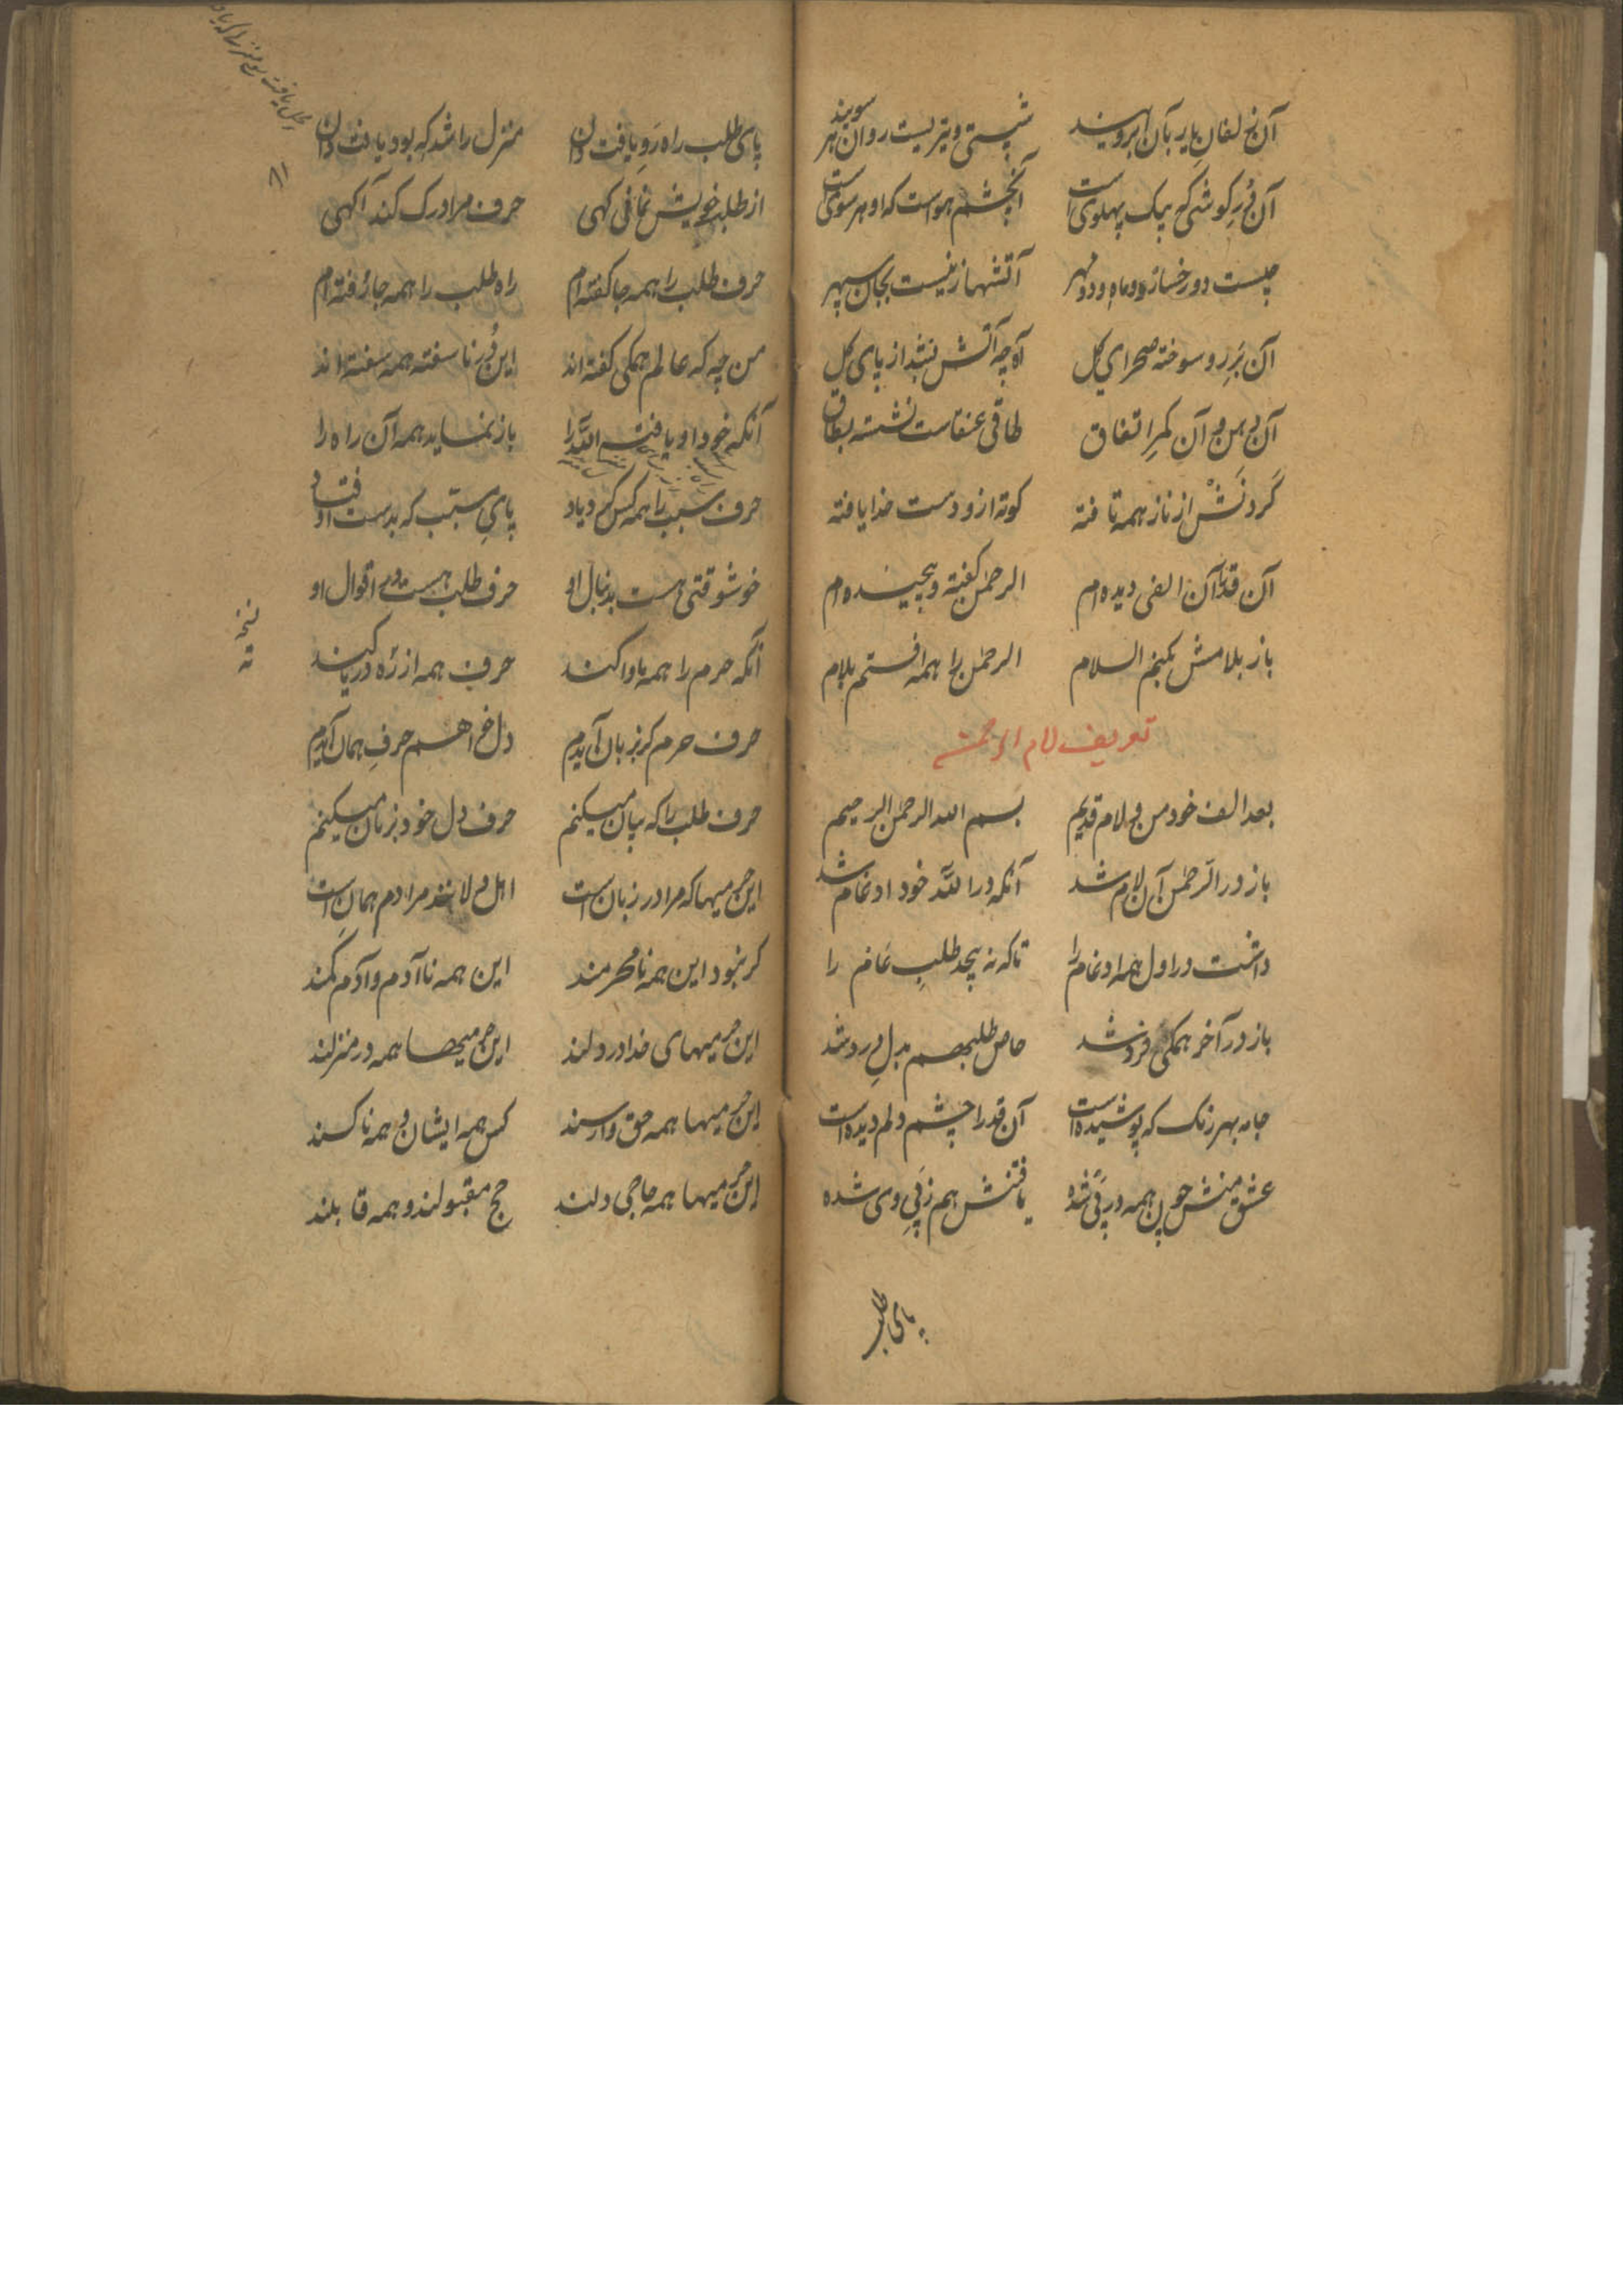 آن زلفان بار بآن ابرویند شستی و تیریست روان هر سویند
آن دُرِ گوشی که بیک پهلوی است آنچشم هواست که او هر سوی است
چیست دو رخساره دو ماه و دو مهر آتشها زنیست بجان سپهر
آن بَرِ رو سوخته صحرای گل آه چه آتش بشد از پای گل
آن دهن و آن کمرِ اتفاق طاقی عنقاست نشسته بطاق
گردنش از ناز همه تافته کوته ازو دست خدا یافته
آن قد آن الفی دیده‌ام الرحمن گفته و پیچیده‌ام
باز بلامش بکنم السلام الرحمن را همه افتم بلام
تعریف لام الرحمن
بعد الف خود من و لام قدیم بسم الله الرحمن الرحیم
باز در الرّحمن آن لام شد آنکه در اللّه خود ادغام شد
داشت در اول همه ادغام را تا که نه پیچد طلبِ عام را
باز در آخر همگی فرد شد حاصل طلبهم بدلِ درد شد
جامه بهر رنگ که پوشیده است آن قد را چشم دلم دیده است
عشق منش چون همه در پَی شده یافتنش هم زپَیِ وی شده
پای طلب
پای طلب راه رَوِ یافت دان منزل را شد که بود یافت دان
از طلب خویش نمافی کهی حرف مرا درک کند آگهی
حرف طلب را همه جا گفته‌ام راه طلب را همه جا رفته‌ام
من چه که عالم همگی گفته‌اند این دُرِ ناسفته همه سفته‌اند
آنکه خود او یافته اللّه را باز نماید همه آن راه را
حرف سبب را همه کس کرد یاد پایِ سبب که بدست اوفتاد
خوشوقتی هست بدنبال او حرف طلب هست در اقوال او
آنکه حرم را همه ماوا کند حرف همه از ره دریا کند
حرف حرم گر بزبان آیدم دل خواهم حرفِ همان آیدم
حرف طلب را که بیان میکنم حرف دل خود بزبان میکنم
این حرمیها که مرا در زبان است اهل ولا اند مرادم همان است
گر نبود این همه نامحرمند این همه ناآدم و آدم کمند
این حرمیهای خدا در دلند این حرمیها همه در منزلند
این حرمیها همه حق وارسند کس همه ایشان و همه ناکسند
این حرمیها همه حاجی دلند حج مقبولند و همه قابلند